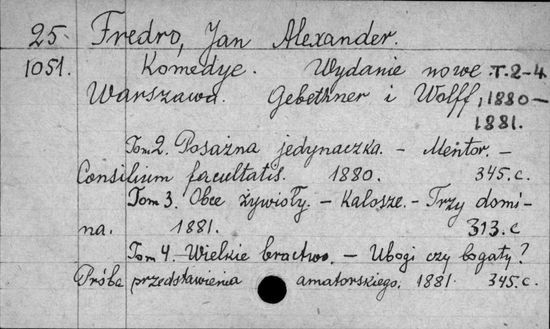 25. Fredro, Jan Alexander.
1051. Komedye. Wydanie nowe T. 2-4
Warszawa. Gebethner i Wolff, 1880-
1881.
Tom 2. Posażna jedynaczka. - Mentor. -
Consilium facultatis. 1880. 345.c.
Tom 3. Obce żywioły. - Kalosze. - Trzy domi-
na. 1881. 313.c
Tom 4. Wielkie bractwo. - Ubogi czy bogaty?
Próba przedstawienia amatorskiego. 1881. 345.c.